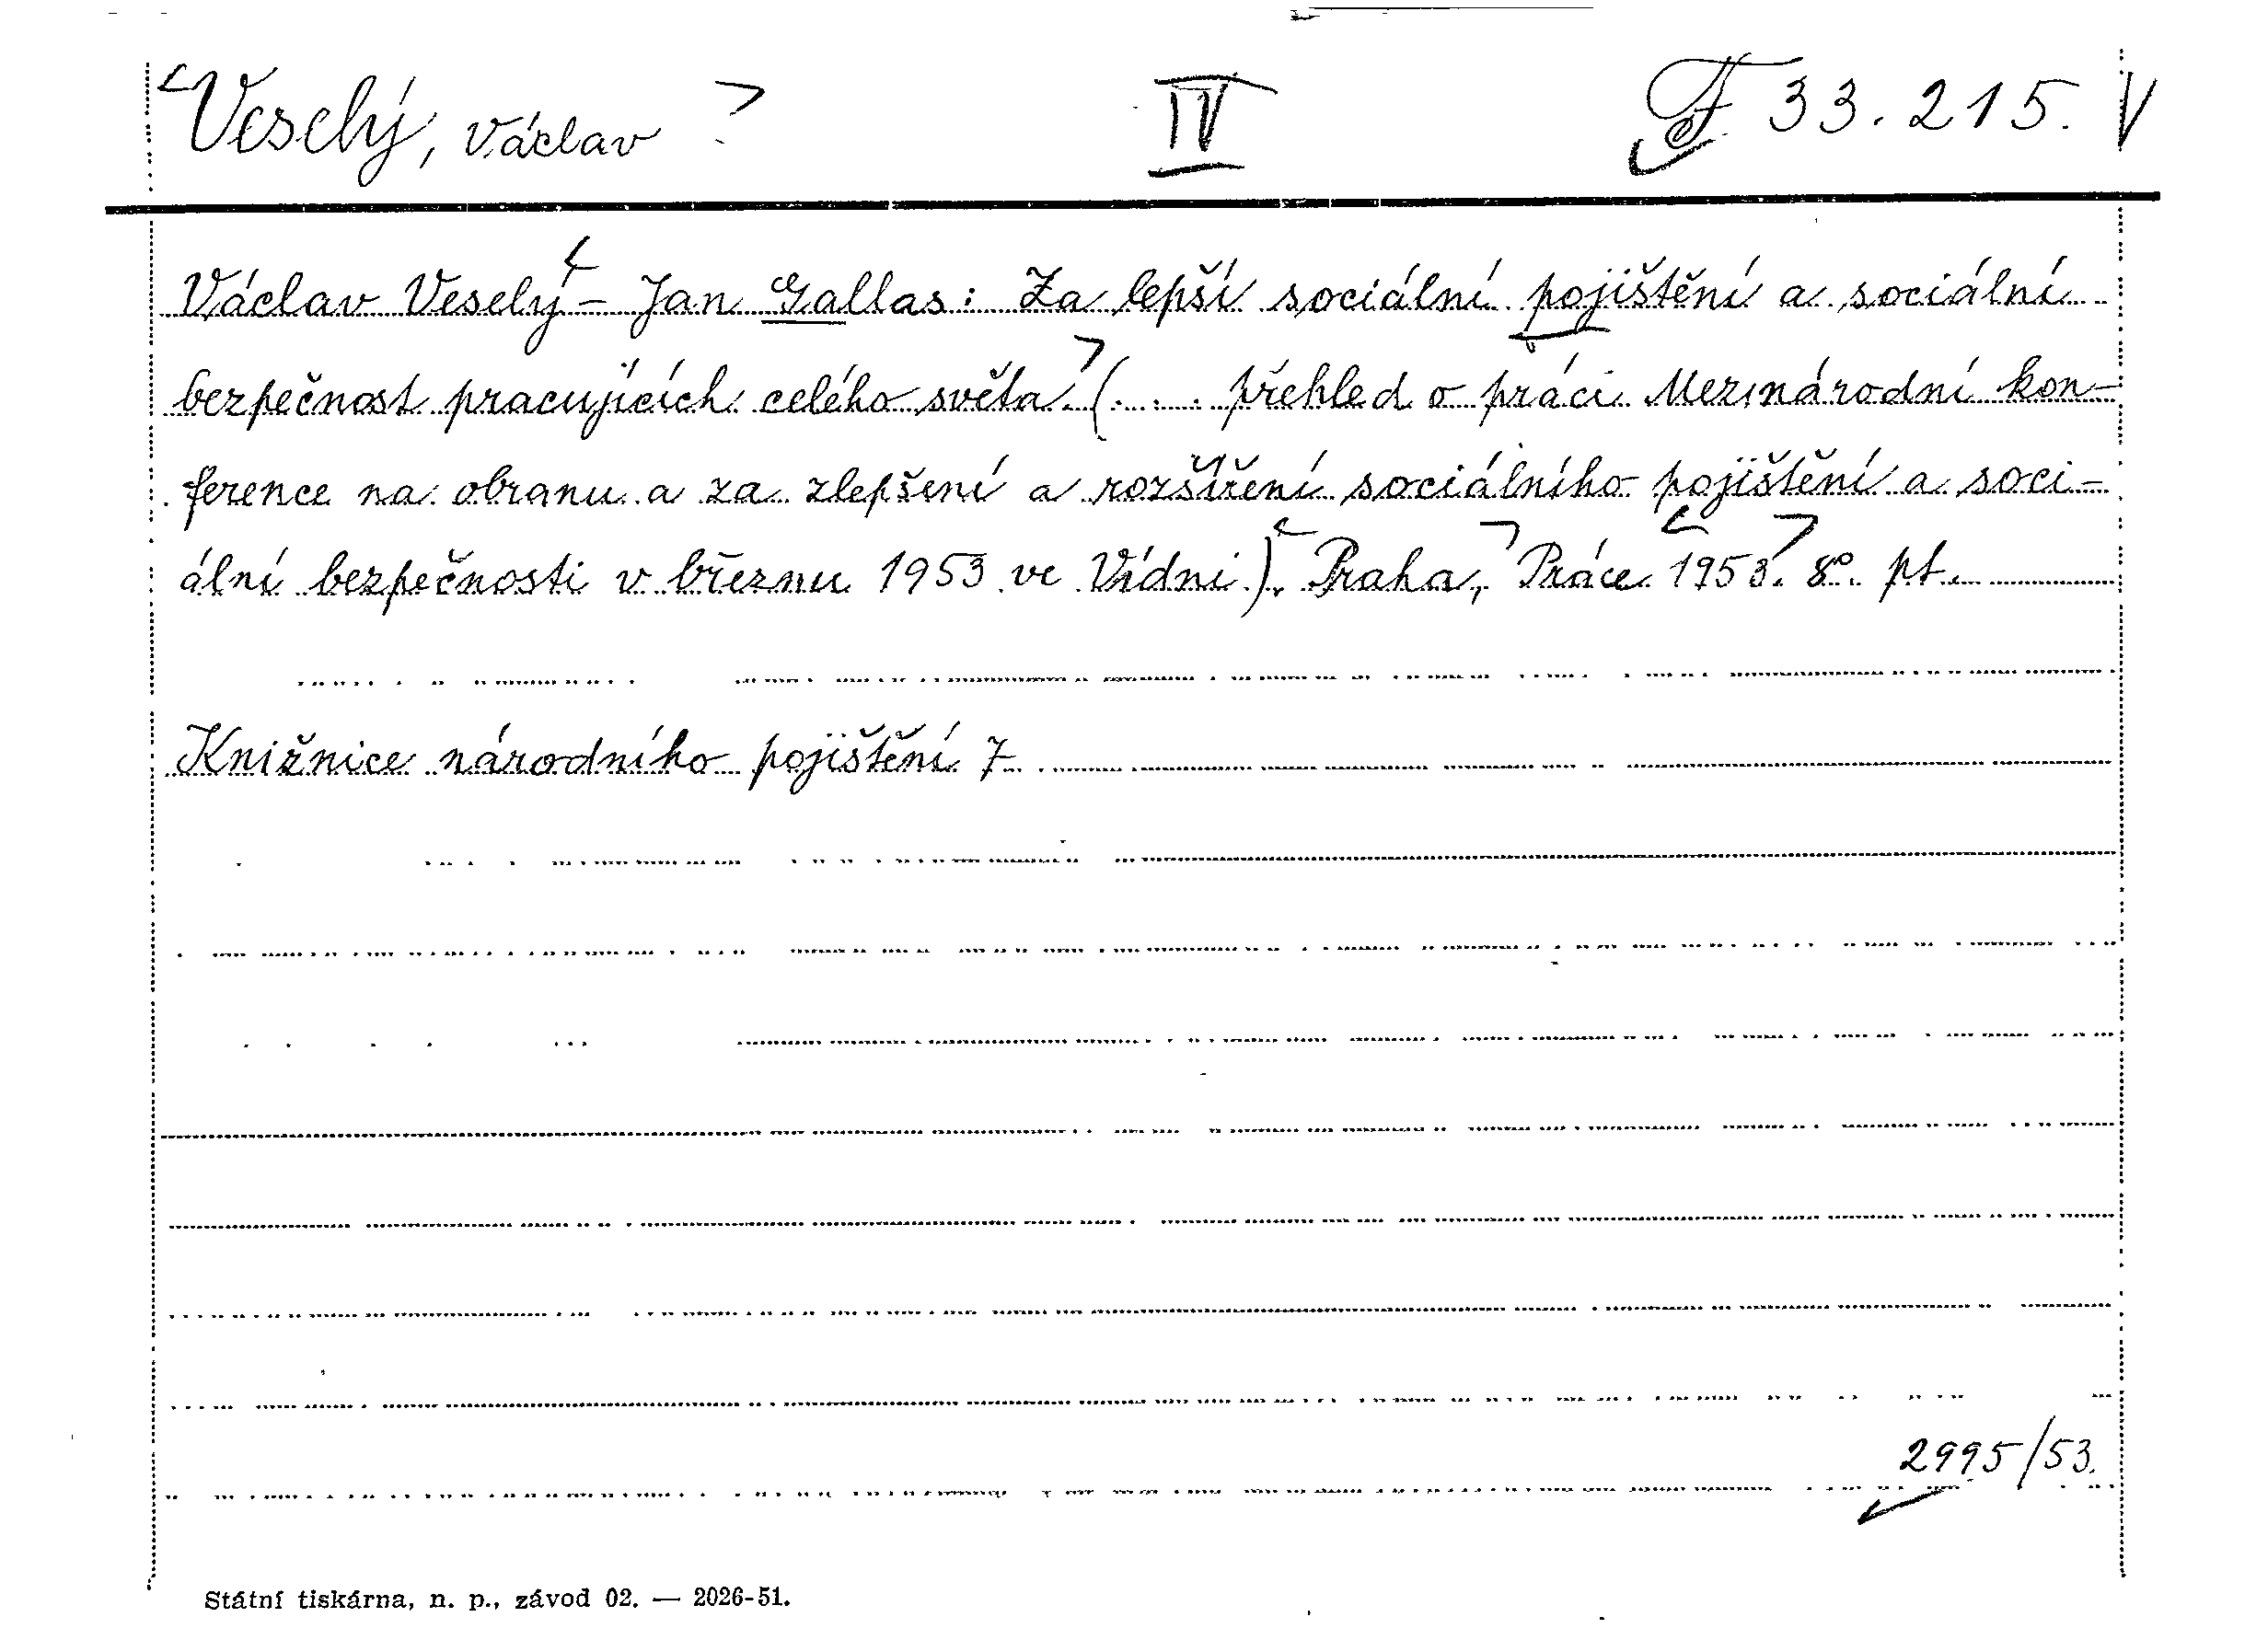 Veselý, Václav IV F 33.215. V
Václav Veselý – Jan Gallas: Za lepší sociální pojištění a sociální
bezpečnost pracujících celého světa. (... přehled o práci Mezinárodní kon-
ference na obranu a za zlepšení a rozšíření sociálního pojištění a soci-
ální bezpečnosti v březnu 1953 ve Vídni). Praha, Práce 1953. 8°. pt.
Knižnice národního pojištění 7
2995/53.
Státní tiskárna, n. p., závod 02. — 2026-51.